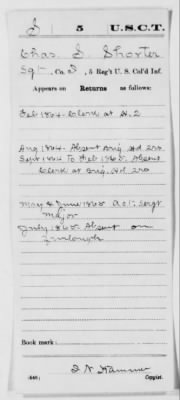 S 5 U.S.C.T.
Chas. S. Shorter
Sgt, Co. D, 5 Reg't U. S. Col'd Inf.
Appears on Returns as follows:
Feb 1864. Clerk at H.2
Aug 1864. Absent Brig. Hd Qrs.
Sept 1864 to Feb 1865. Absent
Clerk at Brig. Hd Qrs
May & June 1865 Act. Sergt
Major
July 1865. Absent on
Furlough
Book mark:
(546) Copyist.